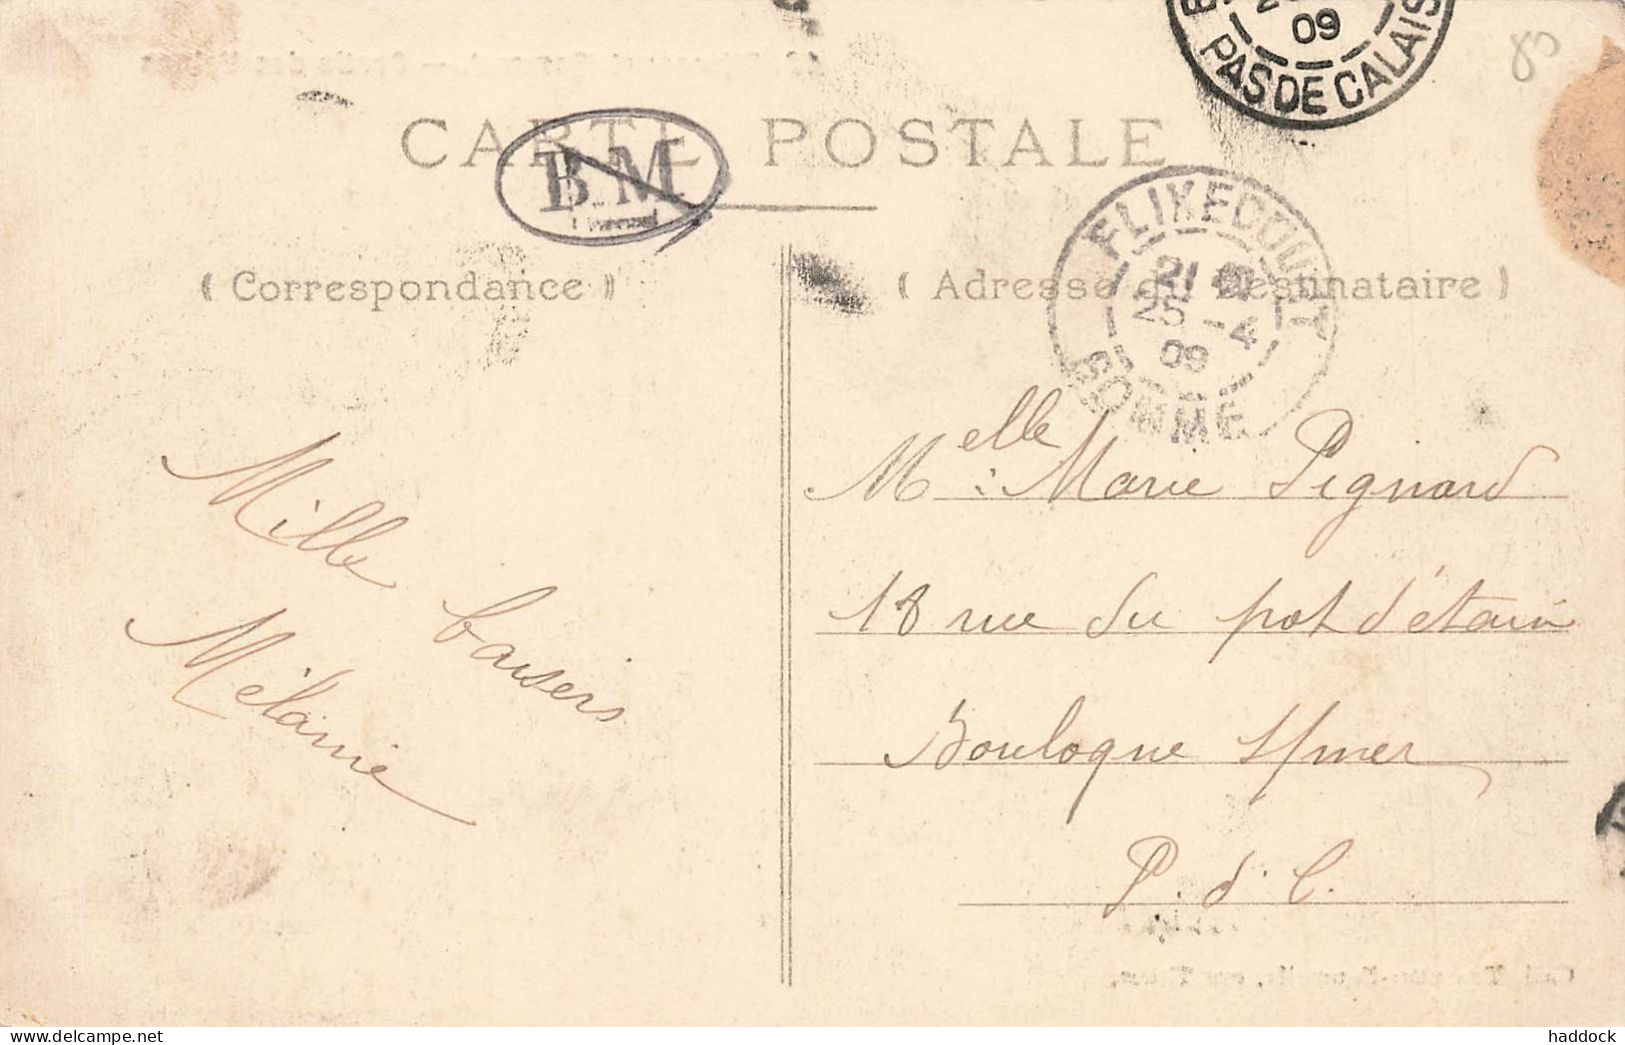 09
PAS DE CALAIS
80
CARTE POSTALE
B.M
FLIXECOURT
25 -4
09
SOMME
( Correspondance )
( Adresse du Destinataire )
Mille baisers
Mélanie
Melle Marie Pignard
18 rue du pot d'étain
Boulogne s/mer
P. d. C.
delcampe.net
haddock